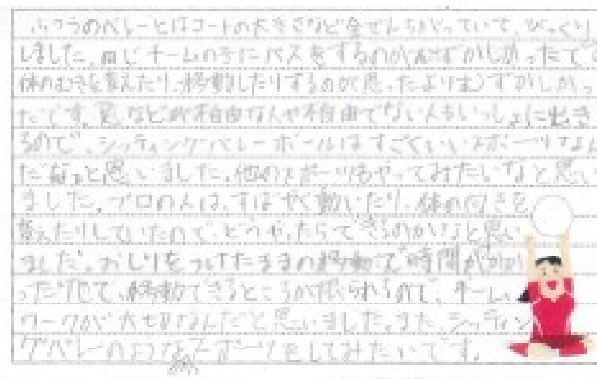 ふつうのバレーとはコートの大きさなど全ぜんちがっていて、びっくり
しました。同じチームの子にパスをするのがむずかしかったで
体のむきを変えたり、移動したりするのが思ったよりむずかしかっ
たです。足などが不自由な人や不自由でない人もいっしょに出き
るので、シッティングバレーボールはすごくいいスポーツなん
だなぁと思いました。他のスポーツもやってみたいなと思い
ました。プロの人は、すばやく動いたり、体の向きを
変えたりしていたので、どうやったらできるのかなと思い
ました。おしりをつけたままの移動で時間がかか
ったりして、移動できるところが限られるので、チーム
ワークが大切なんだと思いました。また、シッティン
グバレーのようなスポーツをしてみたいです。